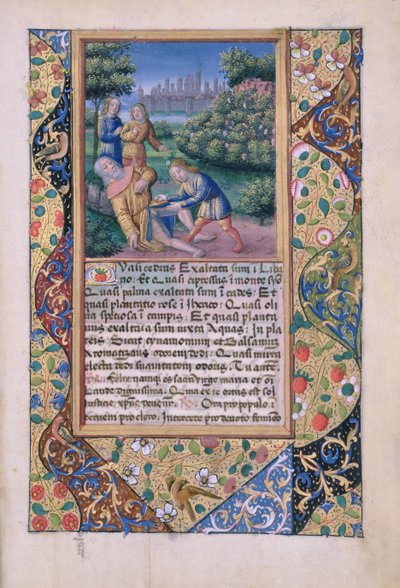 Quasi cedrus Exaltata sum i Liba
no: Et Quasi cipressus i monte syō
Quasi palma exaltata sum i cades: Et
quasi plantatio rose i Iherico: Quasi oli
va speciosa i campis: Et quasi planta
nus exaltata sum iuxta Aquas: In pla
teis Sicut cynamomum et Balsamū
Aromatizans odorem dedi: Quasi mirra
electa dedi suavitatem odoris: Tu autē
Felix namque es sacra virgo maria et oī
Laude dignissima: Quia ex te ortus est sol
iusticie xps deus nr̄:
Ora pro populo i
terveni pro clero: Intercede pro devoto femineo